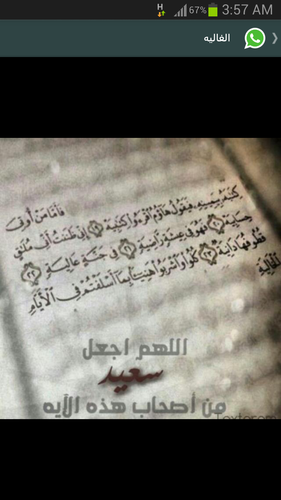 H 67% 3:57 AM
الغاليه
فَأَمَّا مَنْ أُوتِيَ
كِتَٰبَهُۥ بِيَمِينِهِۦ فَيَقُولُ هَآؤُمُ ٱقْرَءُوا۟ كِتَٰبِيَهْ ١٩ إِنِّى ظَنَنتُ أَنِّى مُلَٰقٍ
حِسَابِيَهْ ٢٠ فَهُوَ فِى عِيشَةٍ رَّاضِيَةٍ ٢١ فِى جَنَّةٍ عَالِيَةٍ ٢٢
قُطُوفُهَا دَانِيَةٌ ٢٣ كُلُوا۟ وَٱشْرَبُوا۟ هَنِيٓـًٔۢا بِمَآ أَسْلَفْتُمْ فِى ٱلْأَيَّامِ
ٱلْخَالِيَةِ
اللهم اجعل
سعيد
من أصحاب هذه الآيه